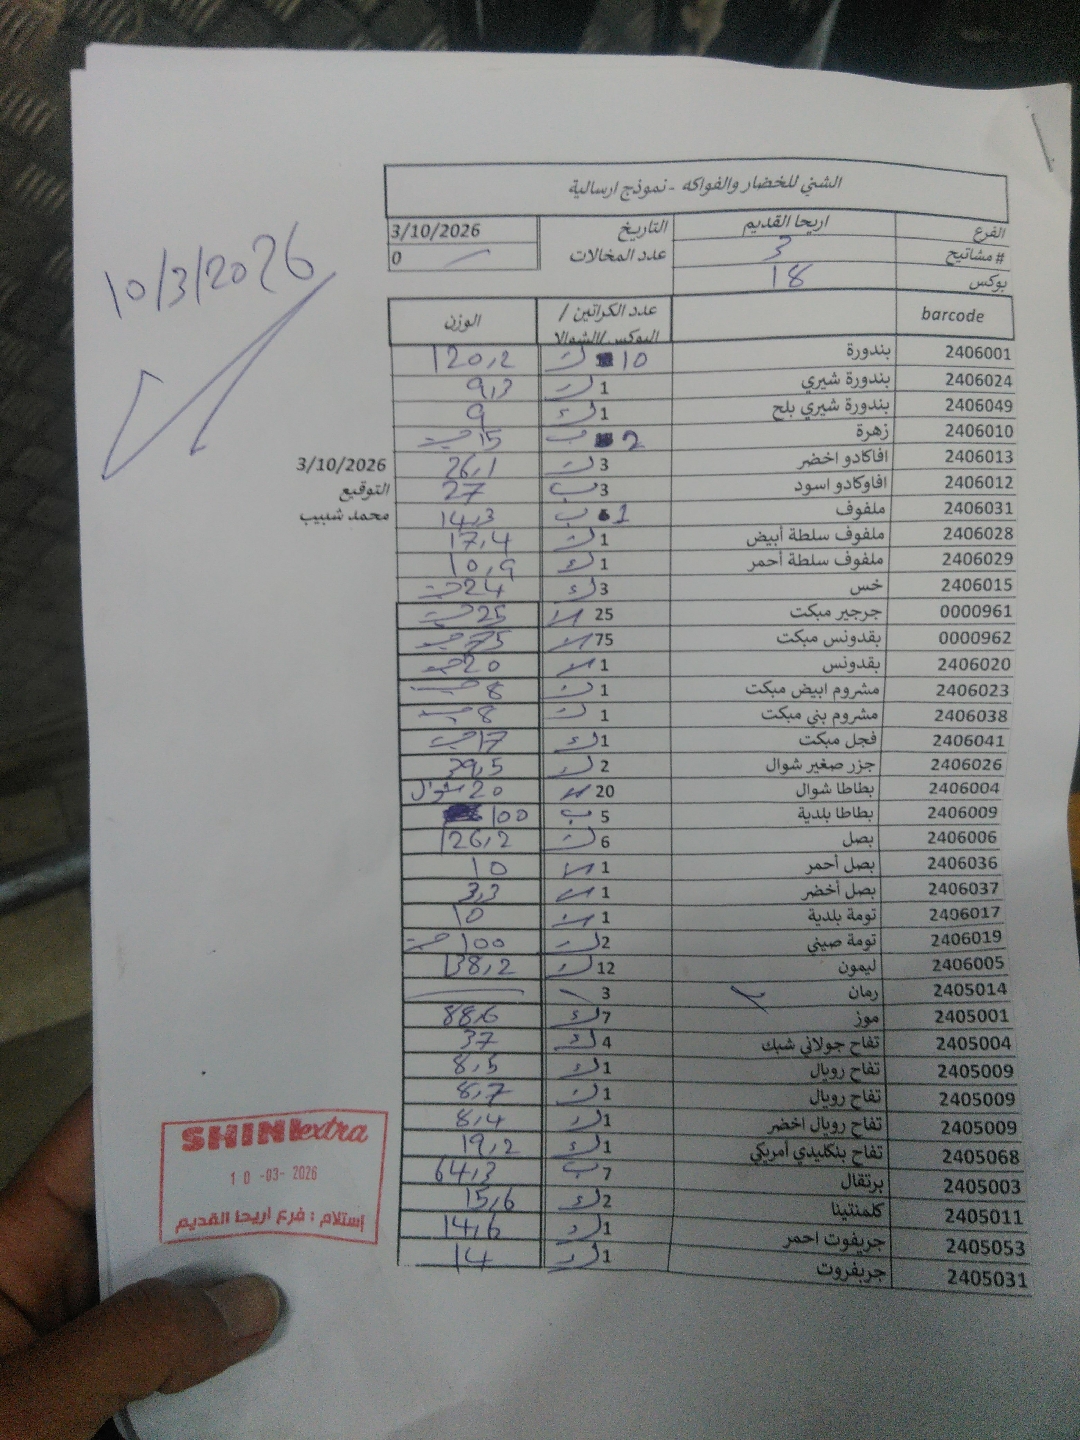 الشني للخضار والفواكه - نموذج ارسالية
الفرع اريحا القديم التاريخ 3/10/2026
# مشاتيح 3 عدد المخالات 0
بوكس 18
10/3/2026
barcode عدد الكراتين / البوكس/الشوالا الوزن
2406001 بندورة 10 ك 120,2
2406024 بندورة شيري 1 ك 9,3
2406049 بندورة شيري بلح 1 ك 9
2406010 زهرة 2 ب 15 حبة
2406013 افاكادو اخضر 3 ك 26,1
2406012 افاوكادو اسود 3 ب 27
2406031 ملفوف 1 ب 14,3
2406028 ملفوف سلطة أبيض 1 ك 17,4
2406029 ملفوف سلطة أحمر 1 ك 10,9
2406015 خس 3 ك 24 حبة
0000961 جرجير مبكت 25 25 حبة
0000962 بقدونس مبكت 75 75 حبة
2406020 بقدونس 1 20 حبة
2406023 مشروم ابيض مبكت 1 ك 8 حبة
2406038 مشروم بني مبكت 1 ك 8 حبة
2406041 فجل مبكت 1 ك 17 حبة
2406026 جزر صغير شوال 2 ك 39,5
2406004 بطاطا شوال 20 20 شوال
2406009 بطاطا بلدية 5 ب 100
2406006 بصل 6 ك 126,2
2406036 بصل أحمر 1 10
2406037 بصل أخضر 1 3,3
2406017 تومة بلدية 1 10
2406019 تومة صيني 2 ك 100 حبة
2406005 ليمون 12 ك 138,2
2405014 رمان 3
2405001 موز 7 ك 88,6
2405004 تفاح جولاني شبك 4 ك 37
2405009 تفاح رويال 1 ك 8,5
2405009 تفاح رويال 1 ك 8,7
2405009 تفاح رويال اخضر 1 ك 8,4
2405068 تفاح بنكليدي أمريكي 1 ك 19,2
2405003 برتقال 7 ب 64,3
2405011 كلمنتينا 2 ك 15,6
2405053 جريفوت احمر 1 ك 14,6
2405031 جريفروت 1 ك 14
3/10/2026
التوقيع
محمد شبيب
SHINI extra
10 -03- 2026
إستلام : فرع أريحا القديم